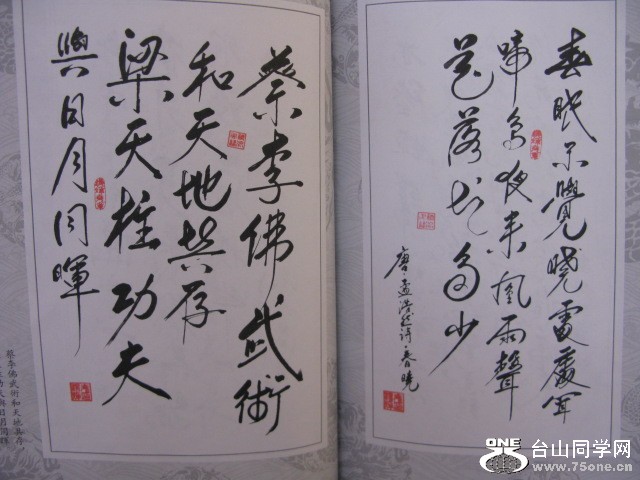 春眠不覺曉處處闻
啼鳥夜来風雨聲
花落知多少
唐孟浩然詩春曉
蔡李佛武術
和天地共存
梁天柱功夫
與日月同暉
蔡李佛武術和天地共存
ONE
台山同学网
www.75one.cn